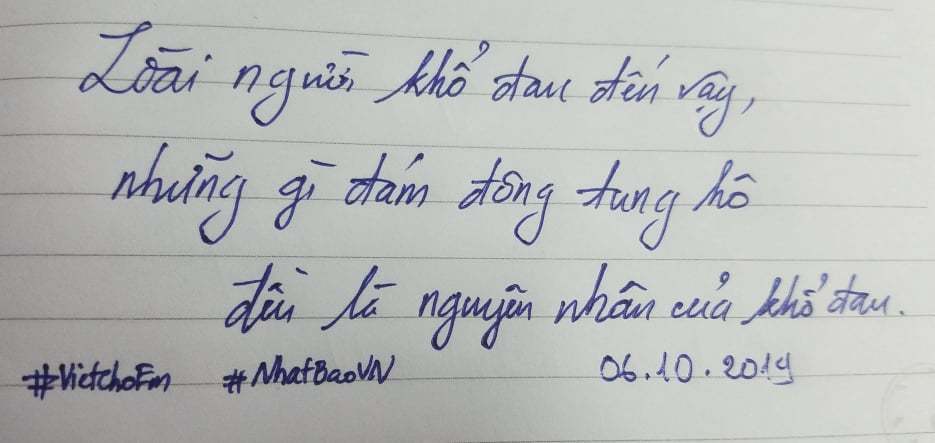 Loài người khổ đau đến vậy,
những gì đám đông tung hô
đều là nguyên nhân của khổ đau.
#VietchoEm #NhatBaoVN 06.10.2019